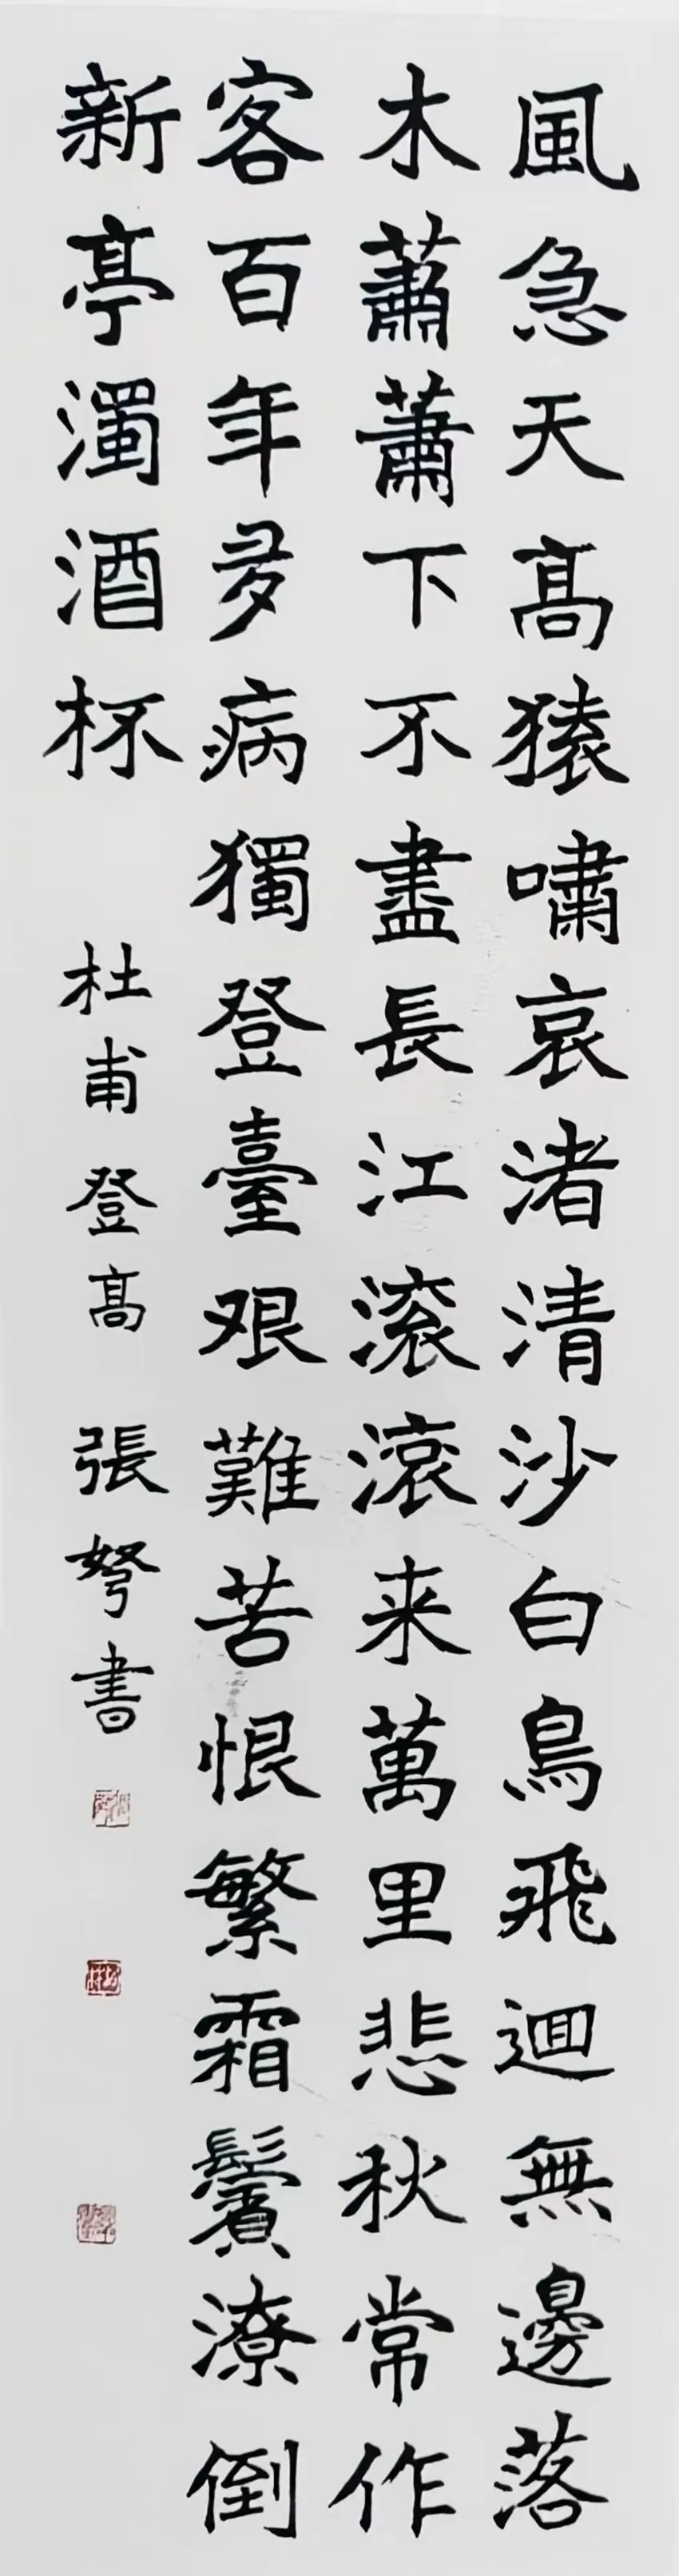 風急天高猿嘯哀渚清沙白鳥飛迴無邊落
木蕭蕭下不盡長江滾滾来萬里悲秋常作
客百年多病獨登臺艰難苦恨繁霜鬢潦倒
新亭濁酒杯
杜甫登高 張弩書